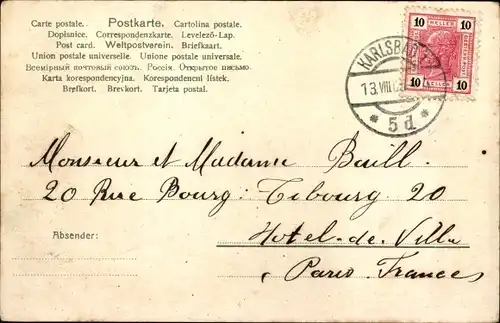 Carte postale. Postkarte. Cartolina postale.
Dopisnice. Correspondenzkarte. Levelező-Lap.
Post card. Weltpostverein. Briefkaart.
Union postale universelle. Unione postale universale.
Всемірный почтовый союзъ. Россія. Открытое письмо.
Karta korespondencyjna. Korespondencní lístek.
Brefkort. Brevkort. Tarjeta postal.
10 10
HELLER HELLER
10 10
KARLSBAD
13 VIII
* 5d *
Monsieur et Madame Baill.
20 Rue Bourg-Tibourg 20
Absender:
Hotel-de-Ville
Paris-France